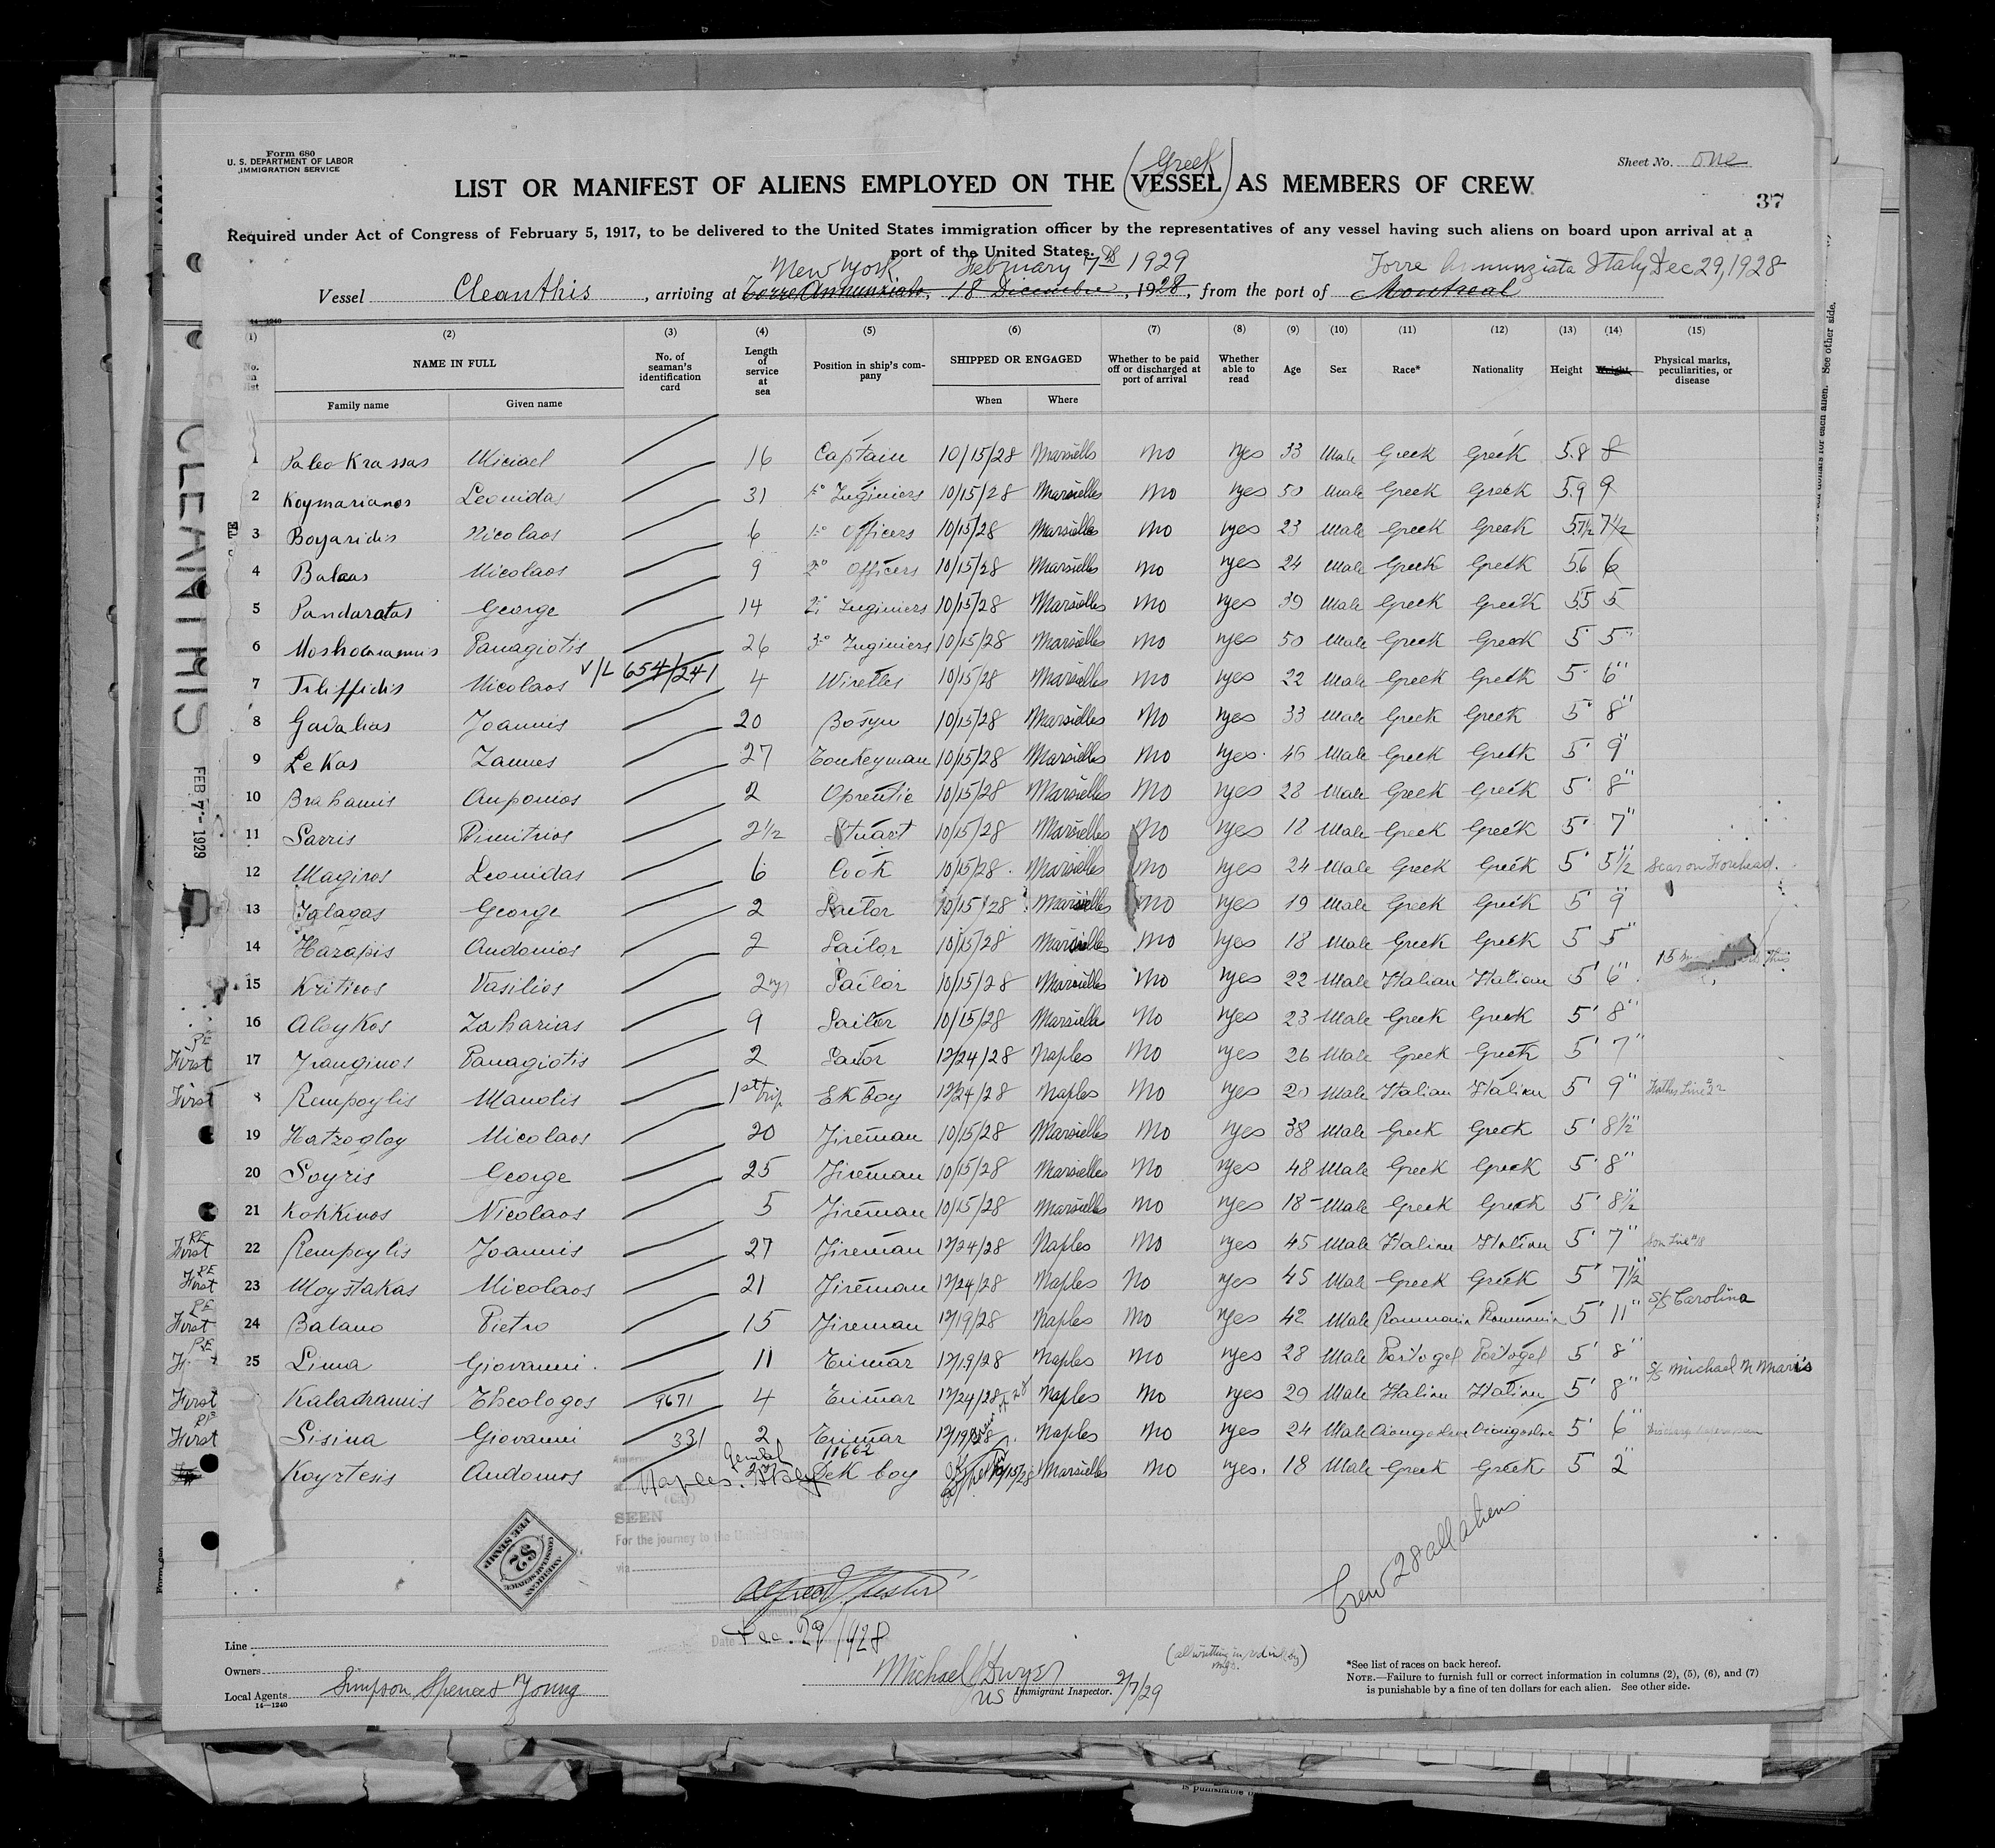 Form 680
U. S. DEPARTMENT OF LABOR
IMMIGRATION SERVICE
Sheet No. one
(Greek)
LIST OR MANIFEST OF ALIENS EMPLOYED ON THE VESSEL AS MEMBERS OF CREW
37
Required under Act of Congress of February 5, 1917, to be delivered to the United States immigration officer by the representatives of any vessel having such aliens on board upon arrival at a
port of the United States.
New York February 7th 1929 Torre Annunziata Italy Dec 29, 1928
Vessel Cleanthis, arriving at Torre Annunziata, 18 Decembre, 1928, from the port of Montreal
(1) (2) (3) (4) (5) (6) (7) (8) (9) (10) (11) (12) (13) (14) (15)
No. on list NAME IN FULL No. of seaman's identification card Length of service at sea Position in ship's company SHIPPED OR ENGAGED Whether to be paid off or discharged at port of arrival Whether able to read Age Sex Race* Nationality Height Weight Physical marks, peculiarities, or disease
Family name Given name When Where
1 Paleo Krassas Miciael 16 Captain 10/15/28 Marsielles No yes 33 Male Greek Greek 5.8 8
2 Koymarianos Leonidas 31 1o Inginiers 10/15/28 Marsielles No yes 50 Male Greek Greek 5.9 9
3 Boyaridis Nicolaos 6 1o Officers 10/15/28 Marsielles No yes 23 Male Greek Greek 5 7 1/2 7 1/2
4 Balcas Nicolaos 9 2o Officers 10/15/28 Marsielles No yes 24 Male Greek Greek 5.6 6
5 Pandaratos George 14 2o Inginiers 10/15/28 Marsielles No yes 39 Male Greek Greek 5.5 5
6 Panagiotis 26 3o Inginiers 10/15/28 Marsielles No yes 50 Male Greek Greek 5 5"
7 Filiffidis Nicolaos V/L 654/241 4 Wirelles 10/15/28 Marsielles No yes 22 Male Greek Greek 5 6"
8 Gavalias Joannis 20 Bosyn 10/15/28 Marsielles No yes 33 Male Greek Greek 5' 8"
9 LeKas Zannes 27 Tonkeyman 10/15/28 Marsielles No yes 46 Male Greek Greek 5' 9"
10 Brahamis 2 Oprentic 10/15/28 Marsielles No yes 28 Male Greek Greek 5' 8"
11 Sarris Dimitrios 2 1/2 Stuart 10/15/28 Marsielles No yes 18 Male Greek Greek 5' 7"
12 Magiros Leonidas 6 Cook 10/15/28 Marsielles No yes 24 Male Greek Greek 5' 5 1/2 Scar on Forehead.
13 George 2 Sailor 10/15/28 Marsielles No yes 19 Male Greek Greek 5' 9"
14 Harapis Andonios 2 Sailor 10/15/28 Marsielles No yes 18 Male Greek Greek 5 5"
15 Kriticos Vasilios 2 Sailor 10/15/28 Marsielles No yes 22 Male Italian Italian 5' 6"
16 AloyKos Zaharias 9 Sailor 10/15/28 Marsielles No yes 23 Male Greek Greek 5' 8"
RE
First 17 Franginos Panagiotis 2 Sailor 12/24/28 Naples No yes 26 Male Greek Greek 5' 7"
First 8 Rempoylis Manolis 1st trip EK boy 12/24/28 Naples No yes 20 Male Italian Italian 5' 9" Father Line 22
19 Hatzogloy Nicolaos 20 Fireman 10/15/28 Marsielles No yes 38 Male Greek Greek 5' 8 1/2"
20 Soyris George 25 Fireman 10/15/28 Marsielles No yes 48 Male Greek Greek 5' 8"
21 Kokkinos Nicolaos 5 Fireman 10/15/28 Marsielles No yes 18 Male Greek Greek 5' 8 1/2
RE
First 22 Rempoylis Joannis 27 Fireman 12/24/28 Naples No yes 45 Male Italian Italian 5' 7" Son Line #18
RE
First 23 Moystakas Nicolaos 21 Fireman 12/24/28 Naples No yes 45 Male Greek Greek 5' 7 1/2
RE S/S Carolina
First 24 Balano Pietro 15 Fireman 12/19/28 Naples No yes 42 Male Roumania Roumania 5' 11"
RE
25 Lima Giovanni 11 Trimar 12/19/28 Naples No yes 28 Male Portogel Portogel 5' 8"
S/S Michael N Maris
First Kaladramis Theologos 9671 4 Trimar 12/24/28 Naples No yes 29 Male Italian Italian 5' 8"
RE
First Sisina Giovanni 331 2 Trimar 12/19/28 Naples No yes 24 Male 5' 6"
11662
Koyrtesis Andonios Dek boy 10/15/28 Marsielles No yes. 18 Male Greek Greek 5 2"
Naples, Italy
SEEN
For the journey to the United States
via
AMERICAN CONSULAR SERVICE
$2
FEE STAMP
Crew 28 all aliens
Date Dec. 29/1928
CLEANTHIS
FEB 7 - 1929
Line
Owners
Local Agents Simpson Spence & Young
14—1240
Michael Dwyer
US Immigrant Inspector. 2/7/29
(all writting in red ink by
*See list of races on back hereof.
NOTE.—Failure to furnish full or correct information in columns (2), (5), (6), and (7)
is punishable by a fine of ten dollars for each alien. See other side.